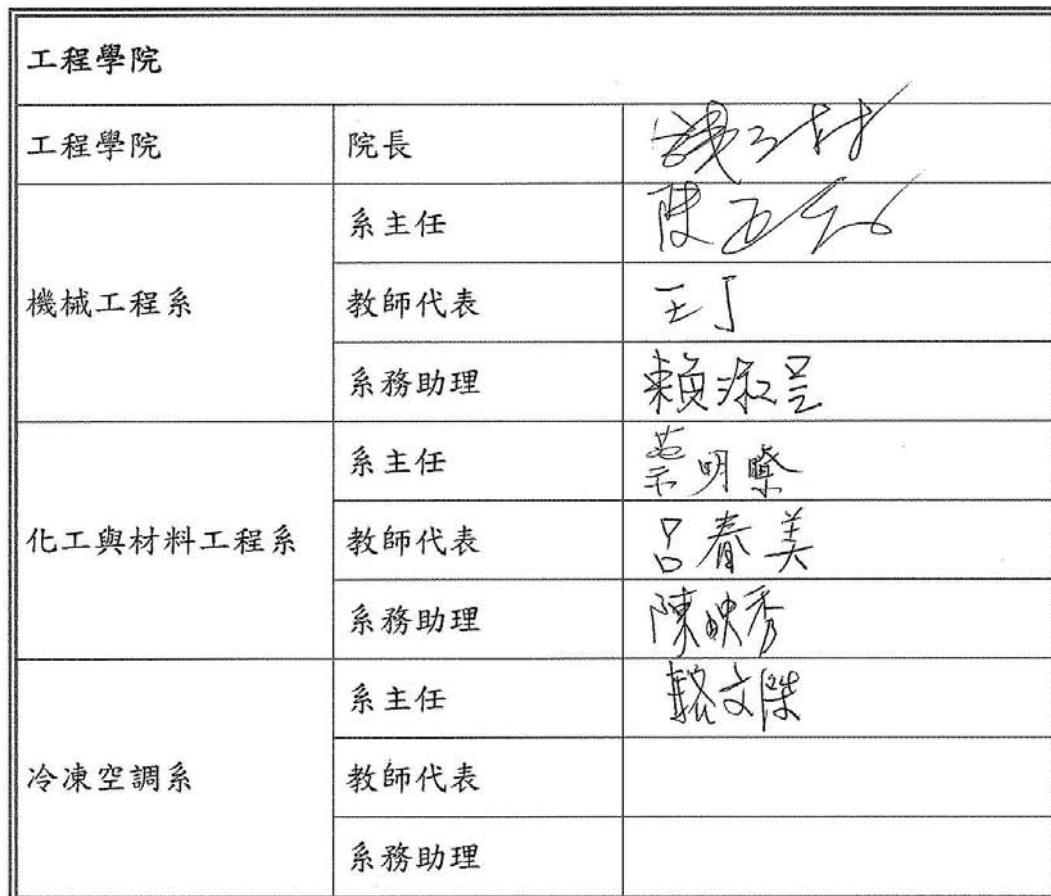 工程學院
工程學院 院長
機械工程系 系主任
教師代表 王丁
系務助理 賴淑呈
化工與材料工程系 系主任 蔡明瞭
教師代表 呂春美
系務助理 陳映秀
冷凍空調系 系主任 駱文傑
教師代表
系務助理